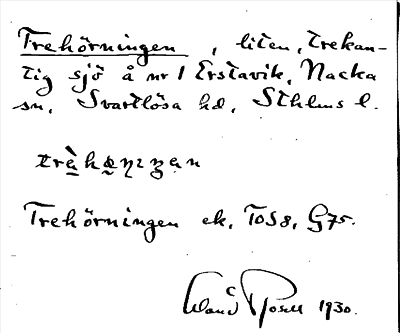 Trehörningen, liten, trekan-
tig sjö å nr 1 Erstavik, Nacka
sn, Svartlösa hd, Sthlms l.
Trehörningen ek. T058, G75.
1930.